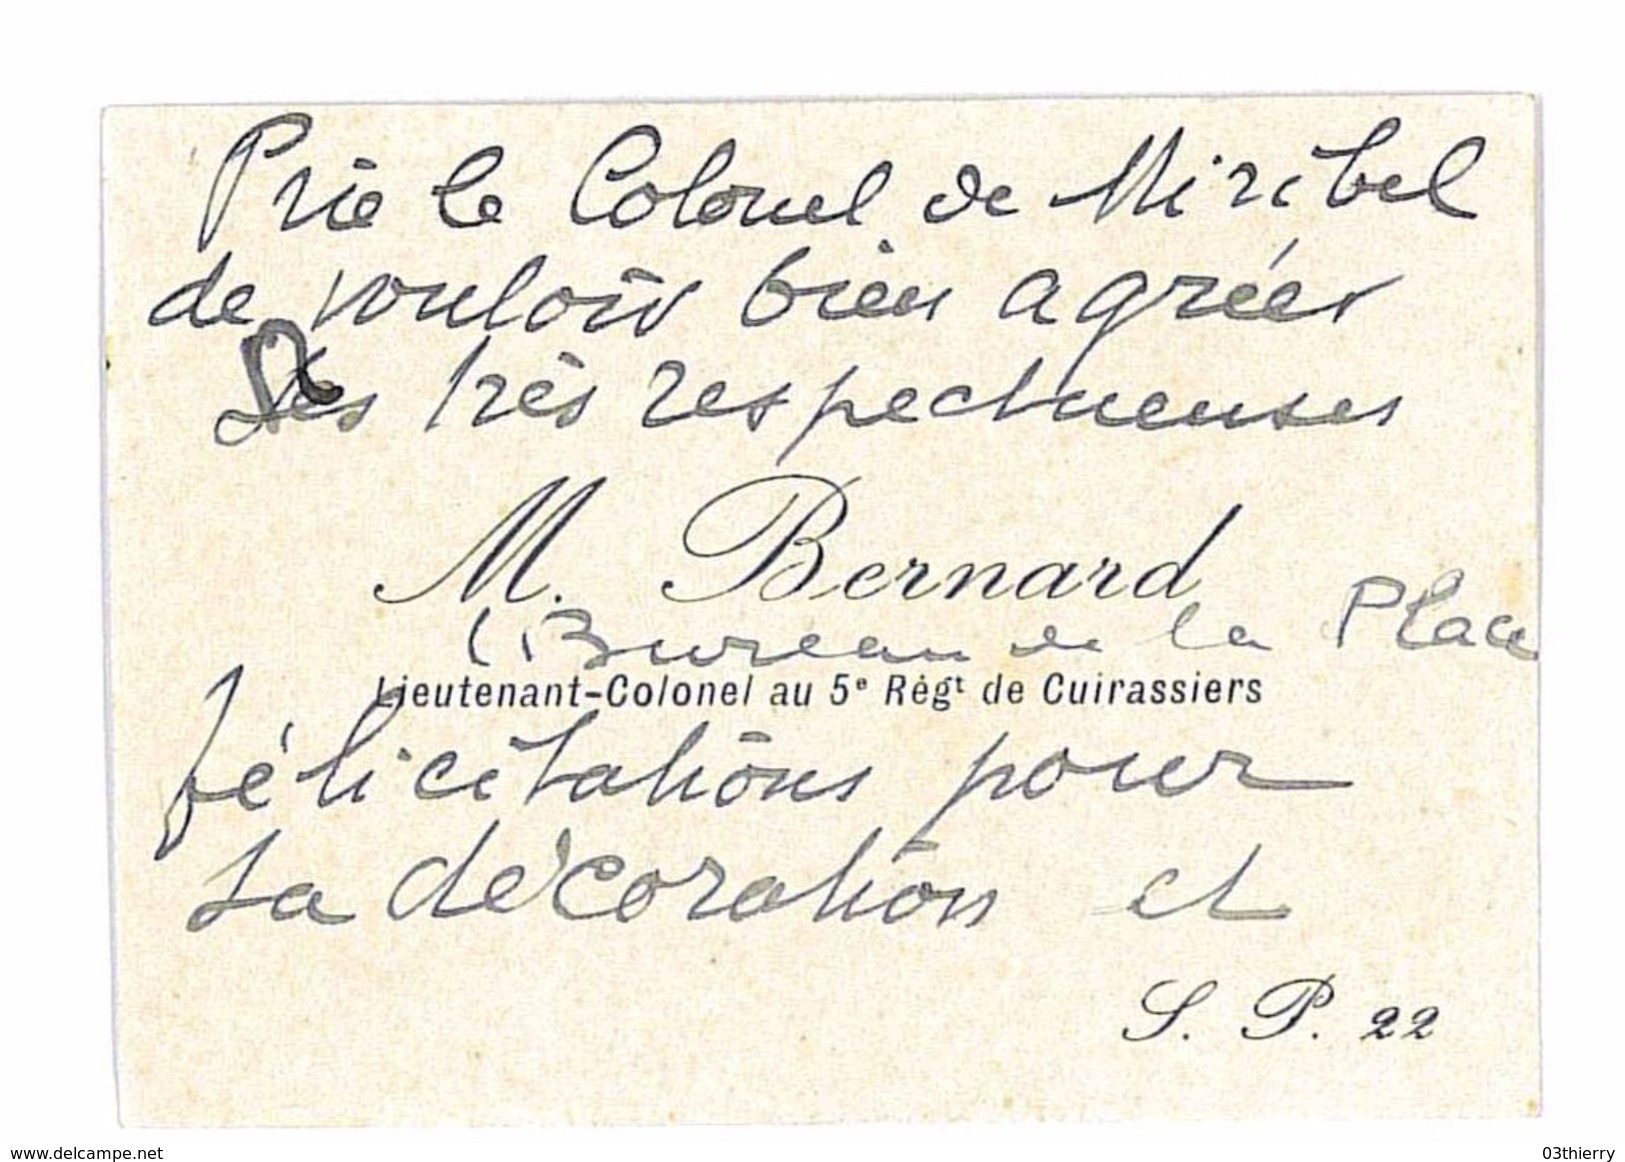 Prie le Colonel de Miribel
de vouloir bien agréer
Ses très respectueuses
M. Bernard
(Bureau de la Place
Lieutenant-Colonel au 5e Régt de Cuirassiers
félicitations pour
sa décoration et
S. P. 22
www.delcampe.net
03thierry